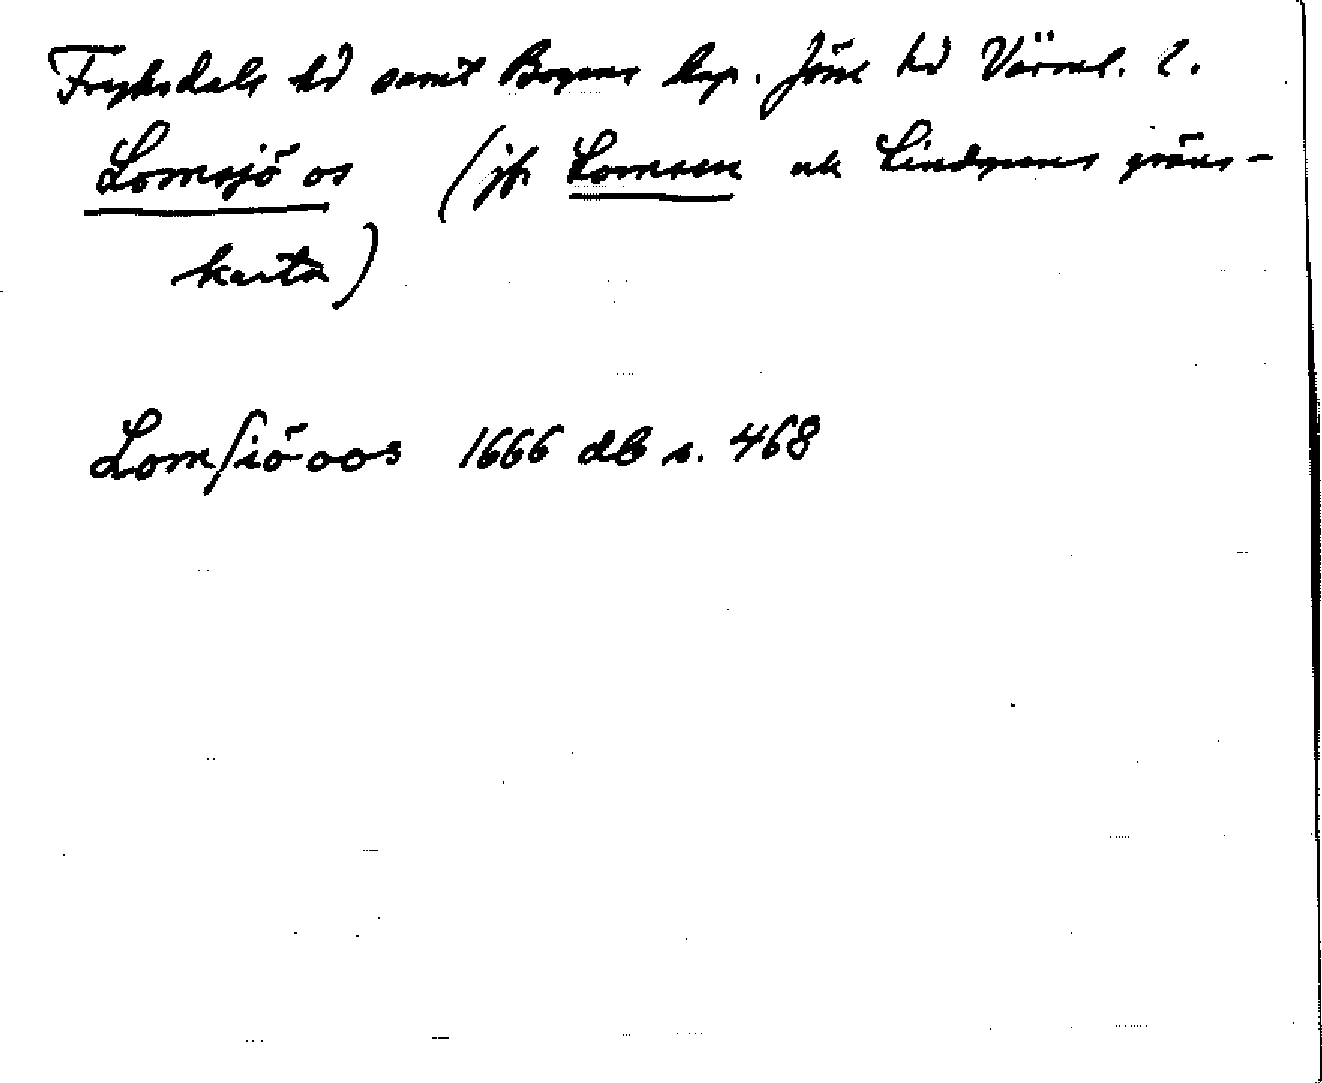 Fryksdals hd samt Bogens kap. Jöss hd Värml. l.
Lomsjö os (jfr Lomsen uk Lindgrens gräns-
karta)
Lomſiö oos 1666 db s. 468